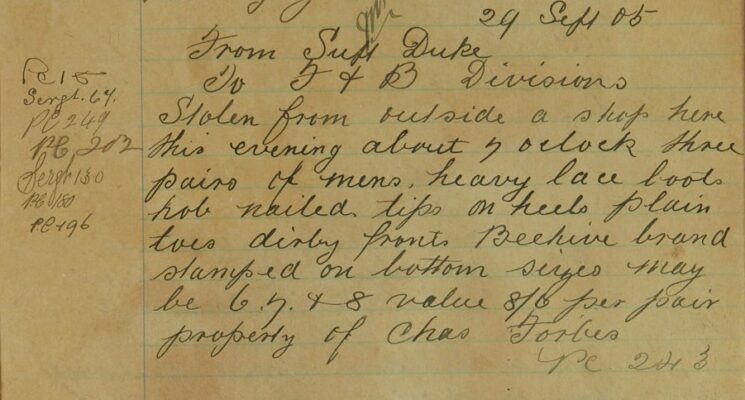 29 Sept 05
From Supt Duke
To F & B Divisions
PC 15
Sergt. 64.
PC 249
PC 202
Sergt 130
PC 180
PC 196
Stolen from outside a shop here
this evening about 7 oclock three
pairs of mens, heavy lace boots
hob nailed tips on heels plain
toes dirby fronts Beehive brand
stamped on bottom sizes may
be 6.7. & 8 value 8/6 per pair
property of Chas Forbes
PC 243